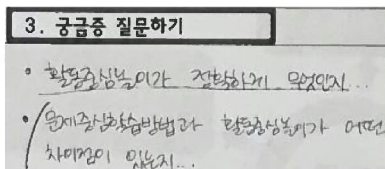 3. 궁금증 질문하기
• 활동중심놀이가 정확하게 무엇인지...
• 문제중심학습방법과 활동중심놀이가 어떤
차이점이 있는지...